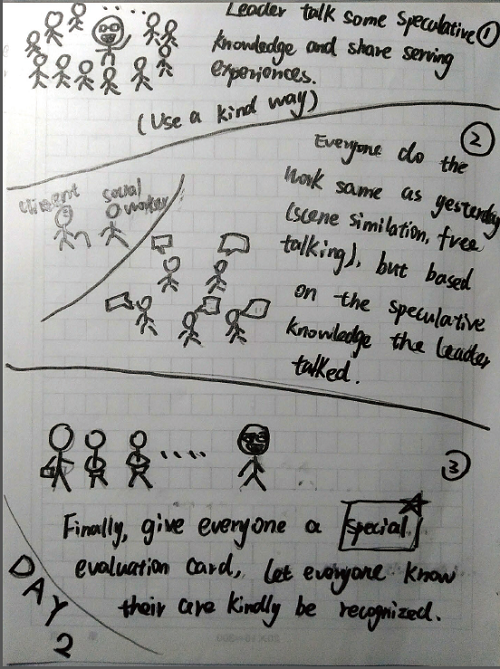 Leader talk some speculative ①
knowledge and share serving
experiences.
(Use a kind way)
②
Everyone do the
work same as yesterday
(scene similation, free
talking), but based
on the speculative
knowledge the Leader
talked.
client
social
worker
③
Finally, give everyone a special
evaluation card, let everyone know
their are kindly be recognized.
DAY 2